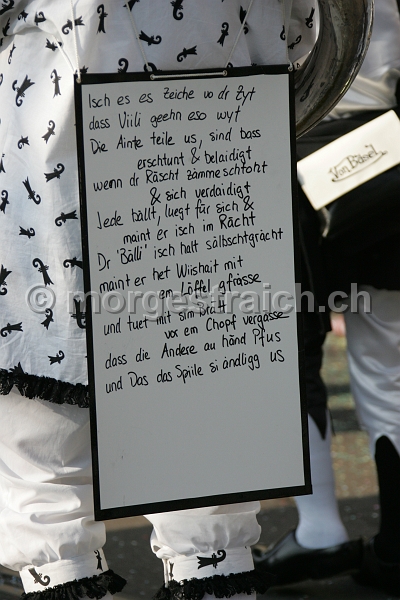 Isch es es Zeiche vo dr Zyt
dass Viili geehn eso wyt
Die Ainte teile us, sind bass
erschtunt & belaidigt
wenn dr Räscht zämmeschtoht
& sich verdaidigt
Jede bällt, luegt für sich &
maint er isch im Rächt
Dr "Bälli" isch halt sälbschtgrächt
maint er het Wiishait mit
em Löffel gfrässe
und tuet mit sim Brätt
vor em Chopf vergässe
dass die Andere au händ Pfus
und Das das Spiile si ändligg us
Von Bâsel
© morgestraich.ch